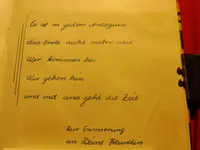 Es ist in jedem Anbeginn
das Ende nicht mehr weit
Wir kommen her
Wir gehen hin
und mit uns geht die Zeit
Zur Erinnerung
an Deine Freundin